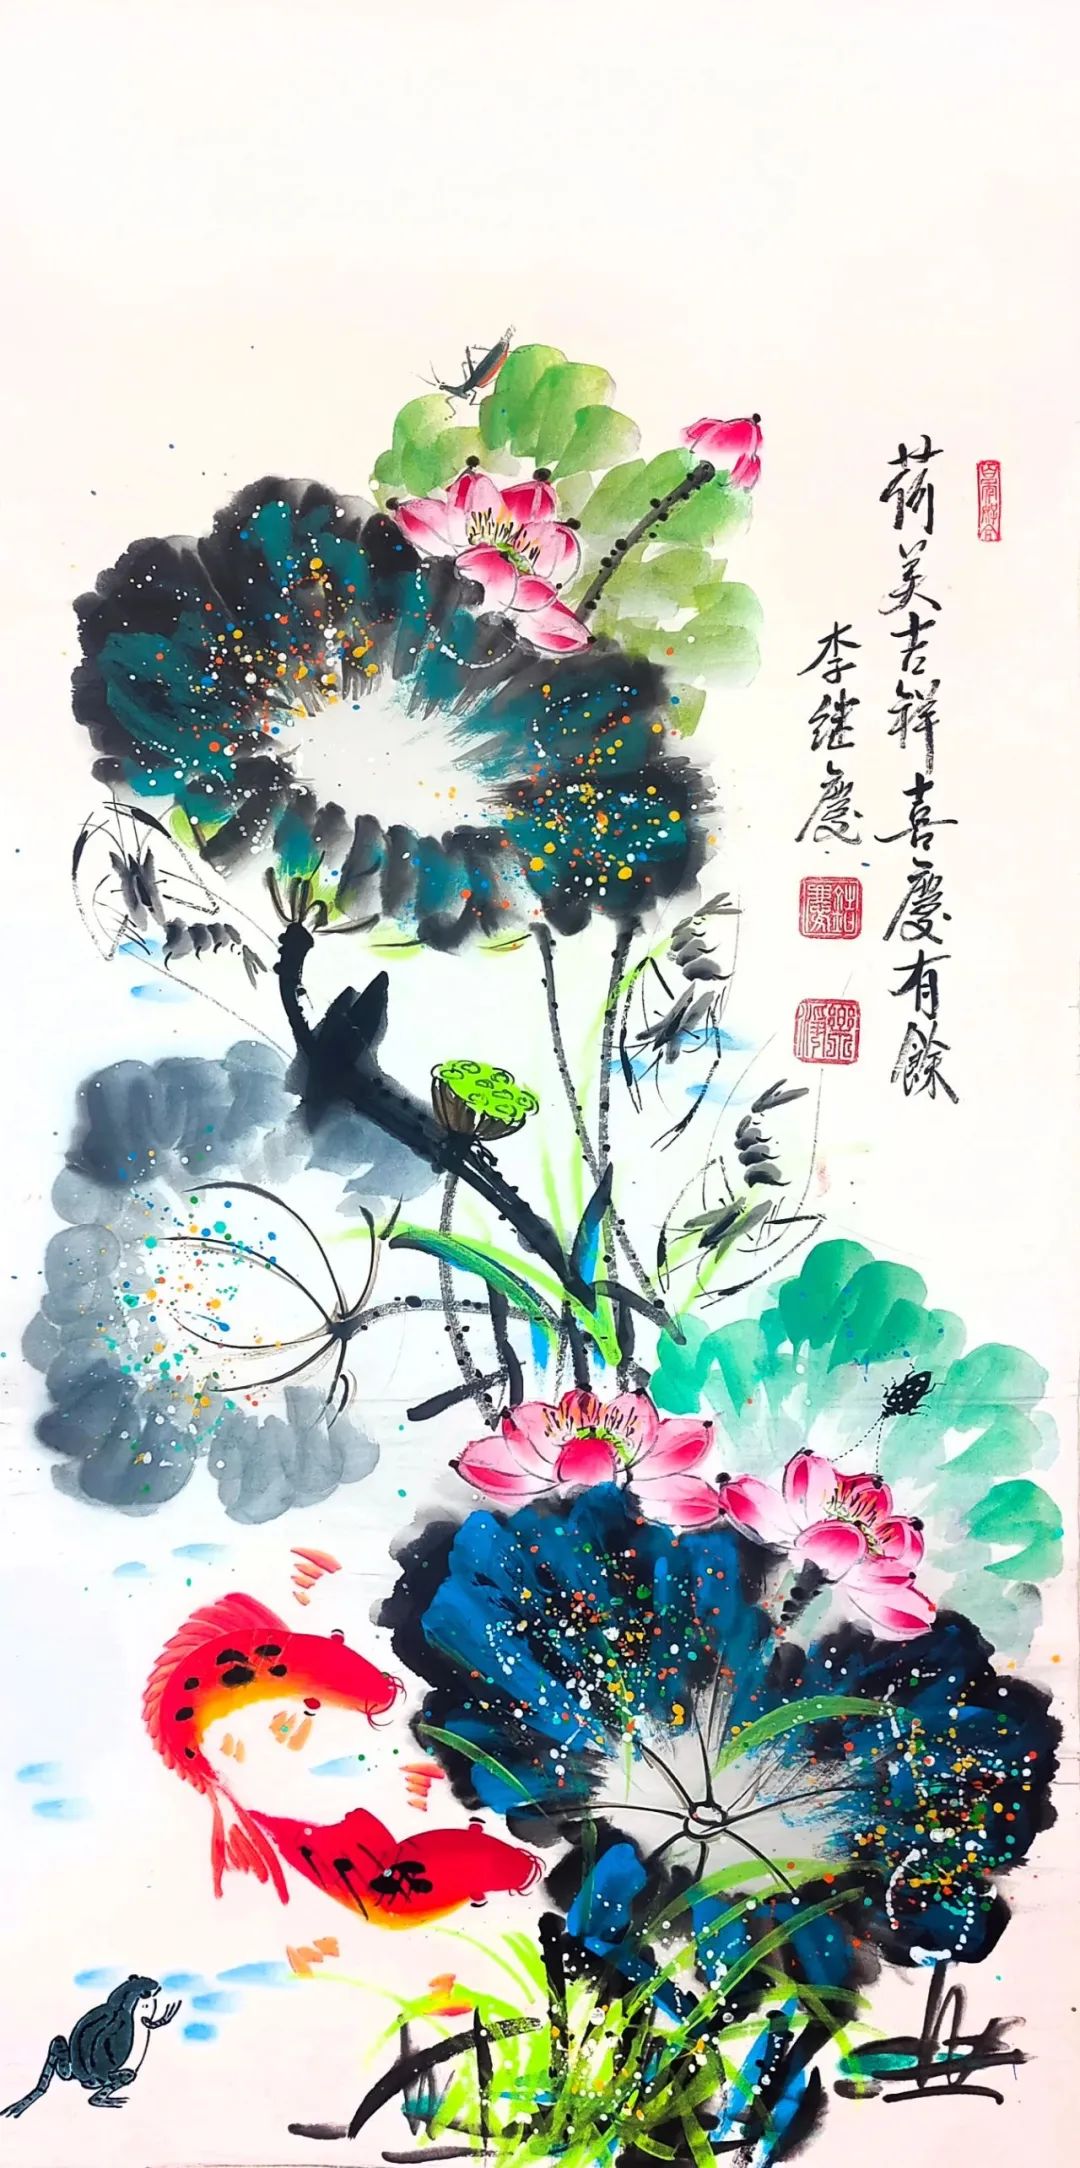 荷美吉祥喜慶有餘
李继慶